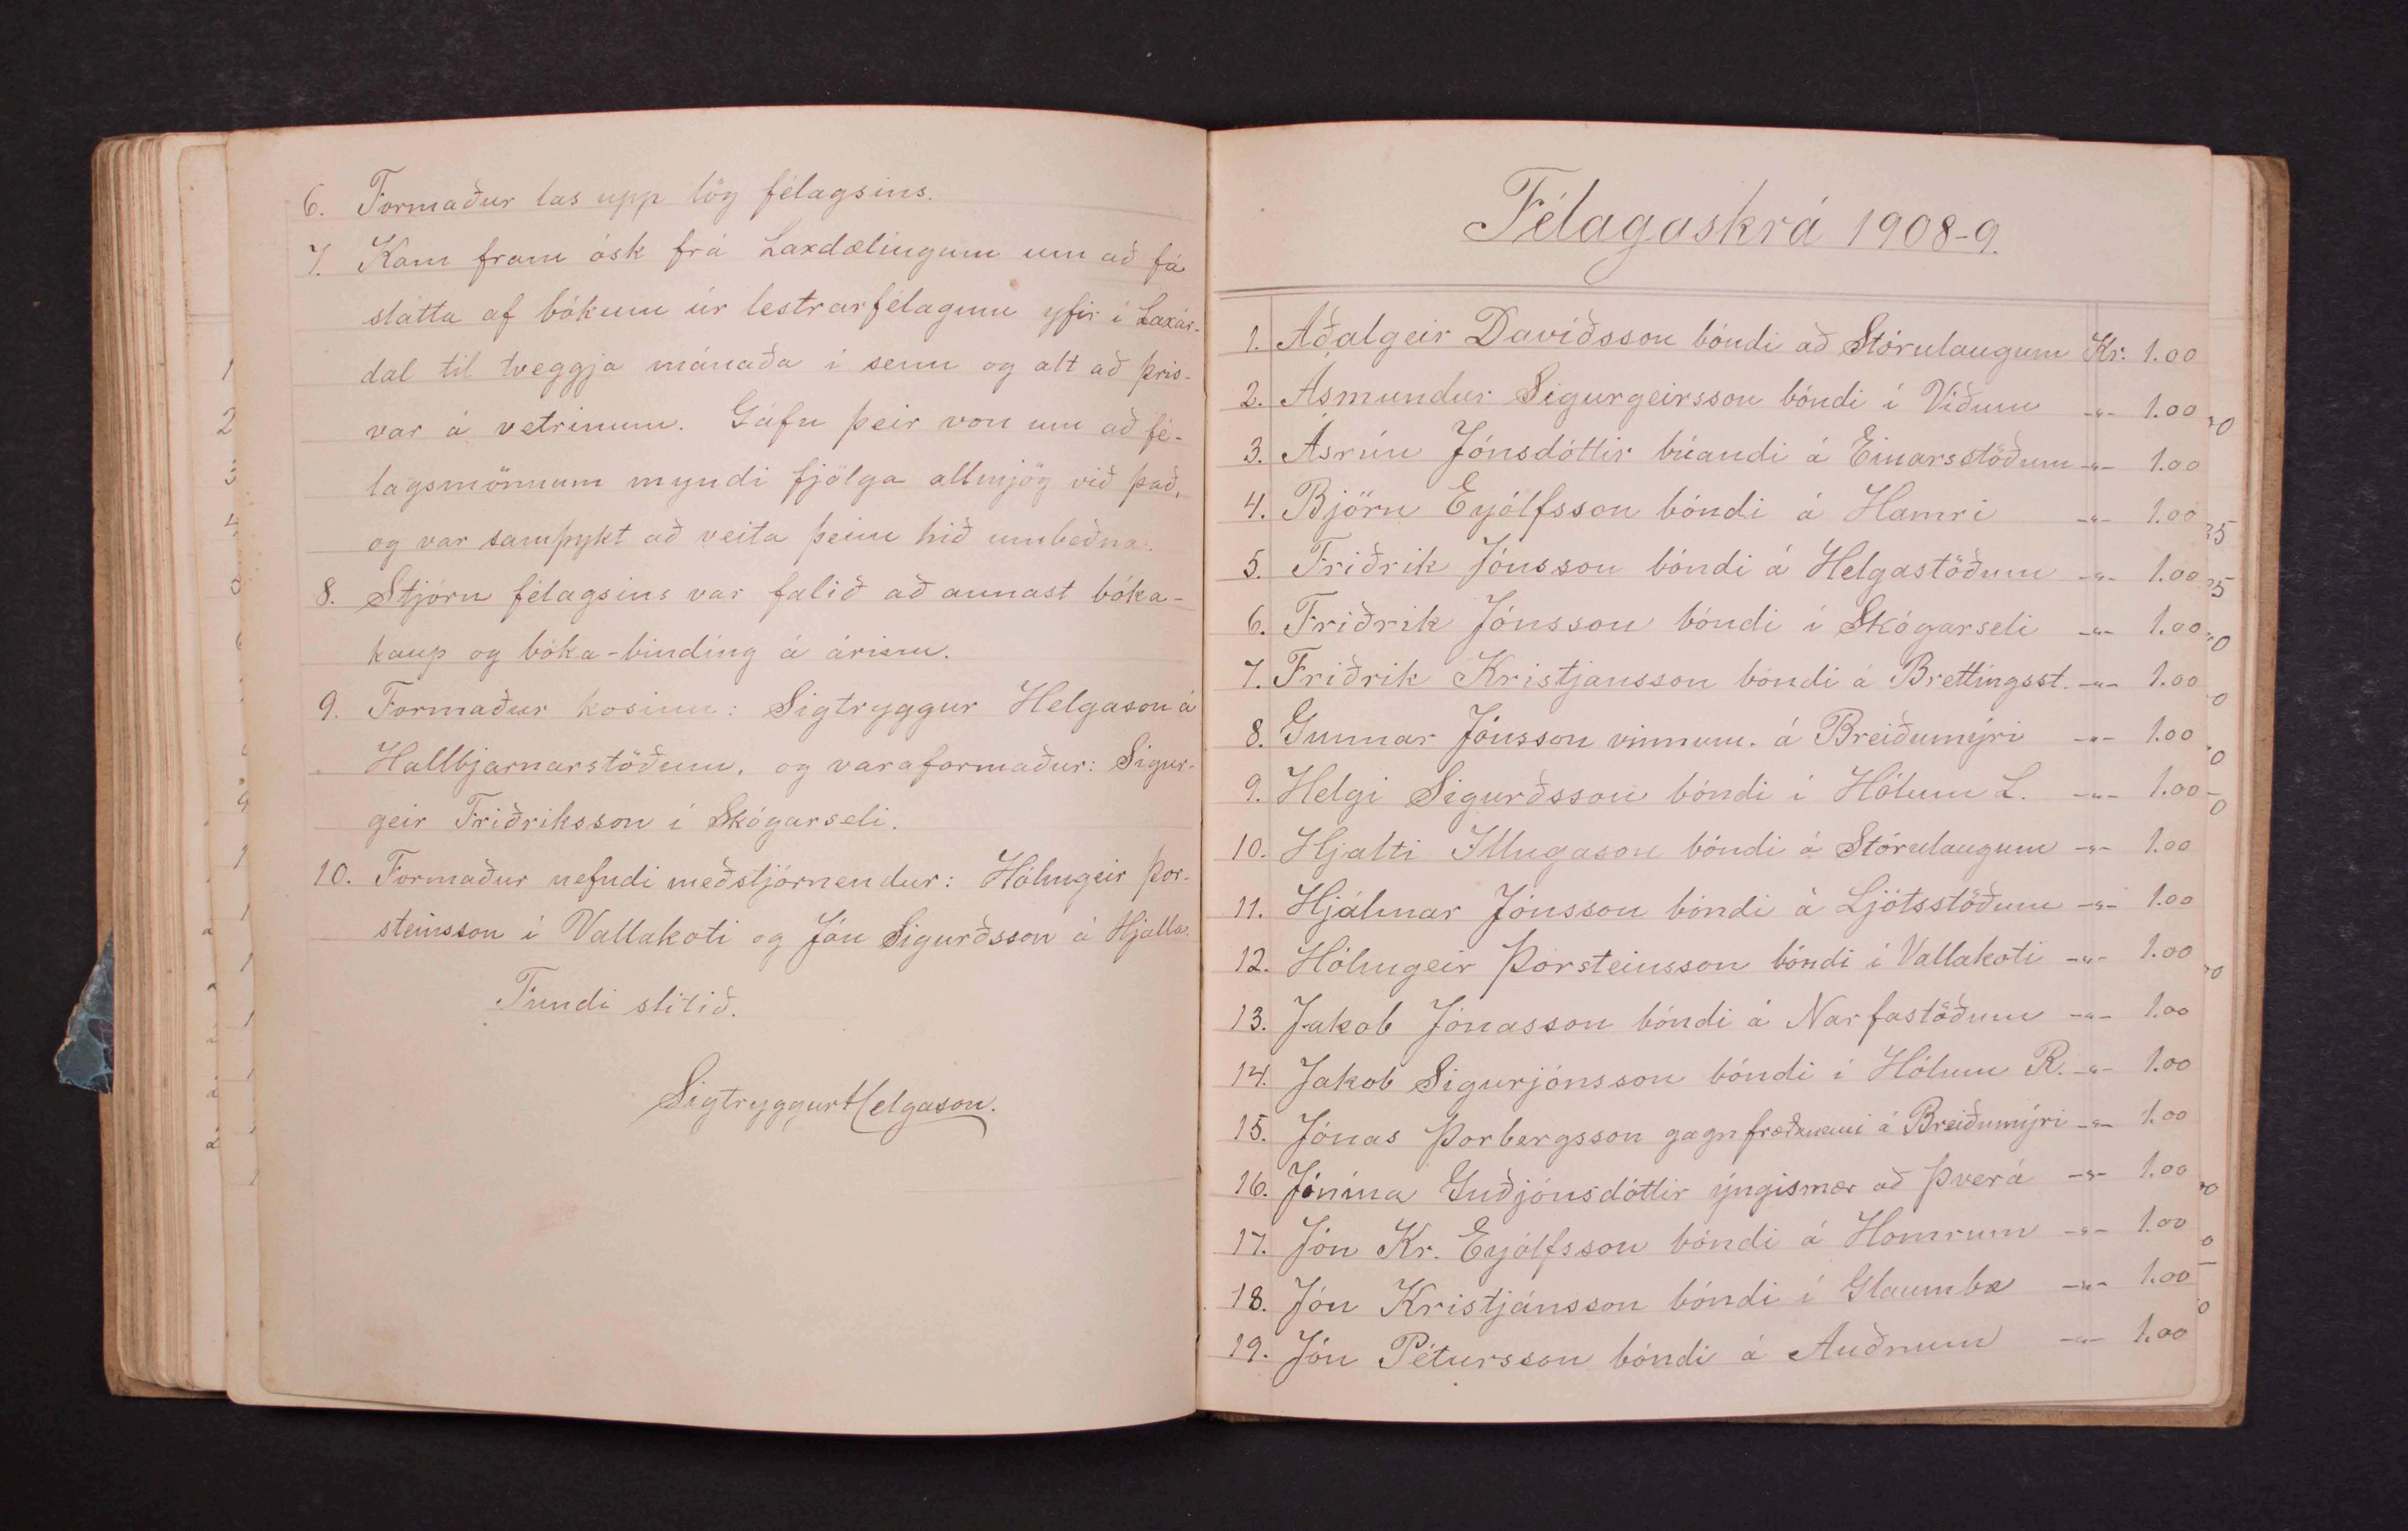 6. Formaður las upp lög félagsins.
7. Kom fram ósk frá Laxdælingum um að fá
slatta af bókum úr lestrarfélaginu yfir í Laxár-
dal til tveggja mánaða í senn og alt að þris-
var á vetrinum. Gáfu þeir von um að fé-
lagsmönnum myndi fjölga allmjög við það,
og var samþykt að veita þeim hið umbeðna.
8. Stjórn félagsins var falið að annast bóka-
kaup og bóka-binding á árinu.
9. Formaður kosinn: Sigtryggur Helgason á
Hallbjarnarstöðum, og varaformaður: Sigur-
geir Friðriksson í Skógarseli.
10. Formaður nefndi meðstjórnendur: Hólmgeir Þor-
steinsson í Vallakoti og Jón Sigurðsson á Hjalla.
Fundi slitið.
Sigtryggur Helgason.
Félagaskrá 1908-9.
1. Aðalgeir Davíðsson bóndi að Stórulaugum Kr. 1.00
2. Ásmundur Sigurgeirsson bóndi í Víðum -"- 1.00
3. Ásrún Jónsdóttir búandi á Einarsstöðum -"- 1.00
4. Björn Eyólfsson bóndi á Hamri -"- 1.00
5. Friðrik Jónsson bóndi á Helgastöðum -"- 1.00
6. Friðrik Jónsson bóndi í Skógarseli -"- 1.00
7. Friðrik Kristjansson bóndi á Brettingsst. -"- 1.00
8. Gunnar Jónsson vinnum. á Breiðumýri -"- 1.00
9. Helgi Sigurðsson bóndi í Hólum L. -"- 1.00
10. Hjalti Illugason bóndi á Stórulaugum -"- 1.00
11. Hjálmar Jónsson bóndi á Ljótsstöðum -"- 1.00
12. Hólmgeir Þorsteinsson bóndi í Vallakoti -"- 1.00
13. Jakob Jónasson bóndi á Narfastöðum -"- 1.00
14. Jakob Sigurjónsson bóndi í Hólum R. -"- 1.00
15. Jónas Þorbergsson gagnfræðingur á Breiðumýri -"- 1.00
16. Jónína Guðjónsdóttir ýngismær að Þverá -"- 1.00
17. Jón Kr. Eyólfsson bóndi á Homrum -"- 1.00
18. Jón Kristjánsson bóndi í Glaumbæ -"- 1.00
19. Jón Pétursson bóndi á Auðnum -"- 1.00